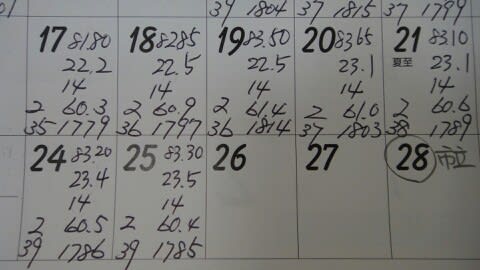 39 1804 37 1815 37 1799
17 81.80 18 82.85 19 83.50 20 83.65 21 83.10
22.2 22.5 22.5 23.1 夏至 23.1
14 14 14 14 14
2 60.3 2 60.9 2 61.4 2 61.0 2 60.6
35 1779 36 1797 36 1814 37 1803 38 1789
24 83.20 25 83.30 26 27 28 市立
23.4 23.5
14 14
2 60.5 2 60.4
39 1786 39 1785